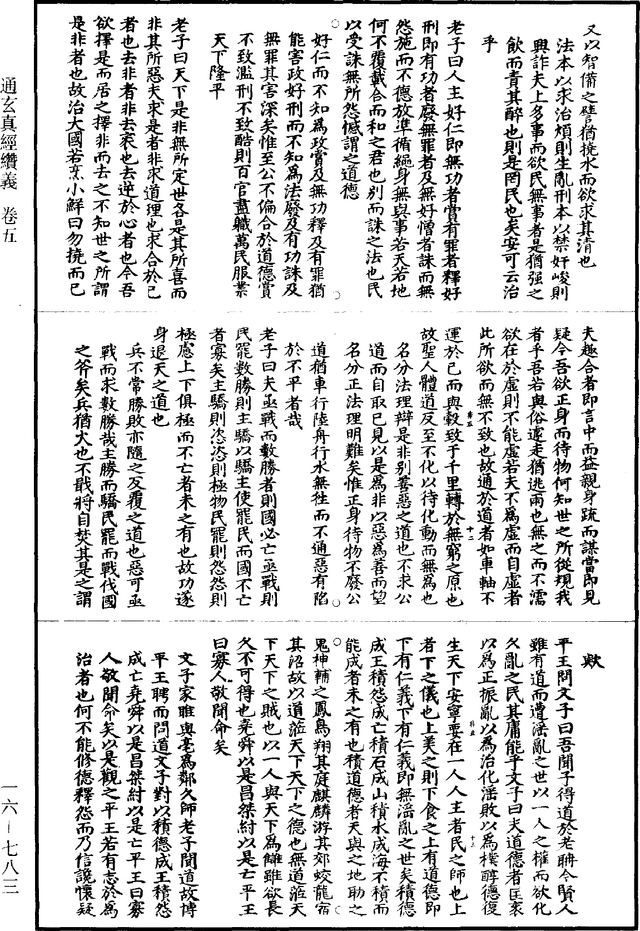 通玄真經纘義 卷五
又以智備之譬猶撓水而欲求其清也
法本以求治煩則生亂刑本以禁奸峻則
興詐夫上多事而欲民無事者是猶强之
飲而責其醉也則是罔民也矣安可云治
乎
老子曰人主好仁即無功者賞有罪者釋好
刑即有功者廢無罪者及無好憎者誅而無
怨施而不德放準循繩身無與事若天若地
何不覆載合而和之君也別而誅之法也民
以受誅無所怨憾謂之道德
好仁而不知為政賞及無功釋及有罪猶
能害政好刑而不知為法廢及有功誅及
無罪其害深矣惟至公不偏合於道德賞
不致濫刑不致酷則百官盡職萬民服業
天下隆平
老子曰天下是非無所定世各是其所喜而
非其所惡夫求是者非求道理也求合於己
者也去非者非去衺也去逆於心者也今吾
欲擇是而居之擇非而去之不知世之所謂
是非者也故治大國若烹小鮮曰勿撓而已
夫趣合者即言中而益親身疏而謀當即見
疑今吾欲正身而待物何知世之所從規我
者乎吾若與俗遽走猶逃雨也無之而不濡
欲在於虛則不能虛若夫不為虛而自虛者
此所欲而無不致也故通於道者如車軸不
運於己而與轂致于千里轉於無窮之原也
故聖人體道反至不化以待化動而無為也
名分法理辯是非別善惡之道也不求公
道而自取已見以是為非以惡為善而望
名分正法理明難矣惟正身待物不廢公
道猶車行陸舟行水無往而不通惡有陷
於不平者哉
老子曰夫亟戰而數勝者則國必亡亟戰則
民罷數勝則主驕以驕主使罷民而國不亡
者寡矣主驕則恣恣則極物民罷則怨怨則
極慮上下俱極而不亡者未之有也故功遂
身退天之道也
兵不常勝敗亦隨之反覆之道也惡可亟
戰而求數勝哉主勝而驕民罷而戰伐國
之斧矣兵猶火也不戢將自焚其是之謂
歟
平王問文子曰吾聞子得道於老聃今賢人
雖有道而遭淫亂之世以一人之權而欲化
久亂之民其庸能乎文子曰夫道德者匡衺
以為正振亂以為治化淫敗以為樸醇德復
生天下安寧要在一人人主者民之師也上
者下之儀也上美之則下食之上有道德即
下有仁義下有仁義即無淫亂之世矣積德
成王積怨成亡積石成山積水成海不積而
能成者未之有也積道德者天與之地助之
鬼神輔之鳳鳥翔其庭麒麟游其郊蛟龍宿
其沼故以道蒞天下天下之德也無道蒞天
下天下之賊也以一人與天下為讎雖欲長
久不可得也堯舜以是昌桀紂以是亡平王
曰寡人敬聞命矣
文子家睢與亳為鄰久師老子聞道故博
平王聘而問道文子對以積德成王積怨
成亡堯舜以是昌桀紂以是亡平王曰寡
人敬聞命矣以是觀之平王若有志於為
治者也何不能修德釋怨而乃信讒懷疑
一六－七八三